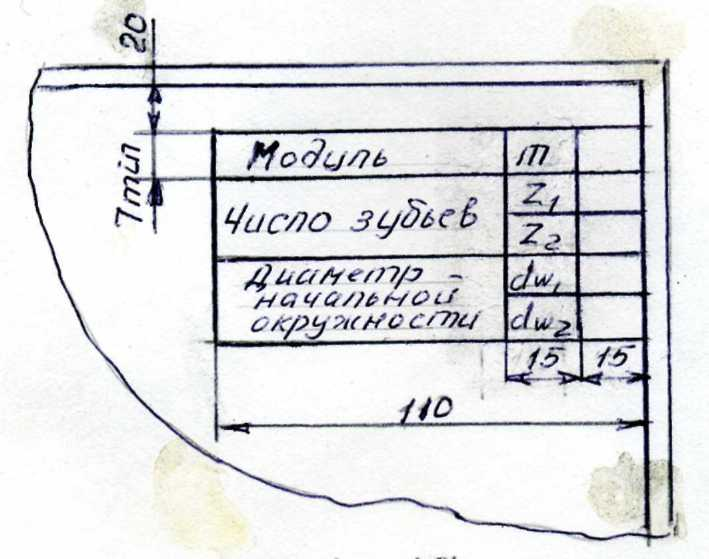 20
7 min
Модуль m
Число зубьев Z₁
Z₂
Диаметр - dw₁
начальной
окружности dw₂
15 15
110